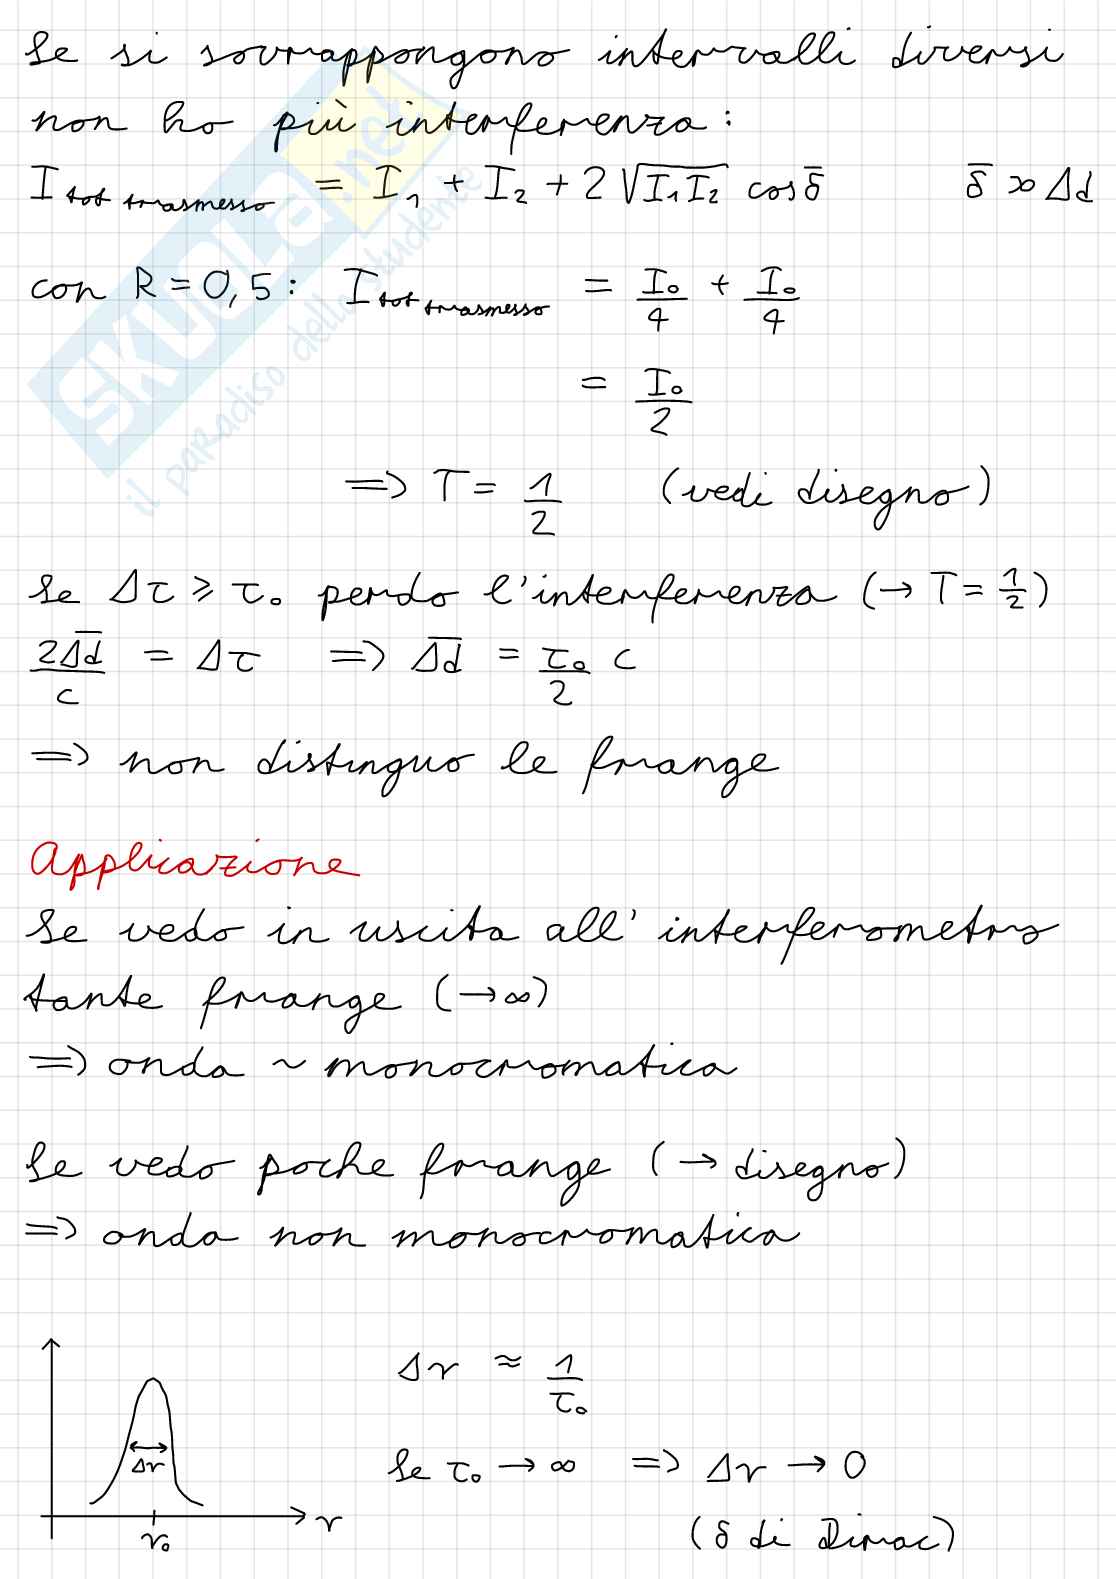 Se si sovrappongono intervalli diversi
non ho più interferenza:
I tot trasmesso = I₁ + I₂ + 2 √(I₁ I₂) cos δ̄     δ̄ ∝ Δd
con R = 0,5: I tot trasmesso = I₀/4 + I₀/4
= I₀/2
=> T = 1/2 (vedi disegno)
Se Δτ ⩾ τ₀ perdo l'interferenza (→ T = 1/2)
2Δd̄/c = Δτ => Δd̄ = τ₀/2 c
=> non distinguo le frange
Applicazione
Se vedo in uscita all'interferometro
tante frange (→ ∞)
=> onda ~ monocromatica
Se vedo poche frange (→ disegno)
=> onda non monocromatica
Δν ≈ 1/τ₀
Δν
Se τ₀ → ∞ => Δν → 0
ν
ν₀
(δ di Dirac)
SKUOLA.net
il paradiso dello studente